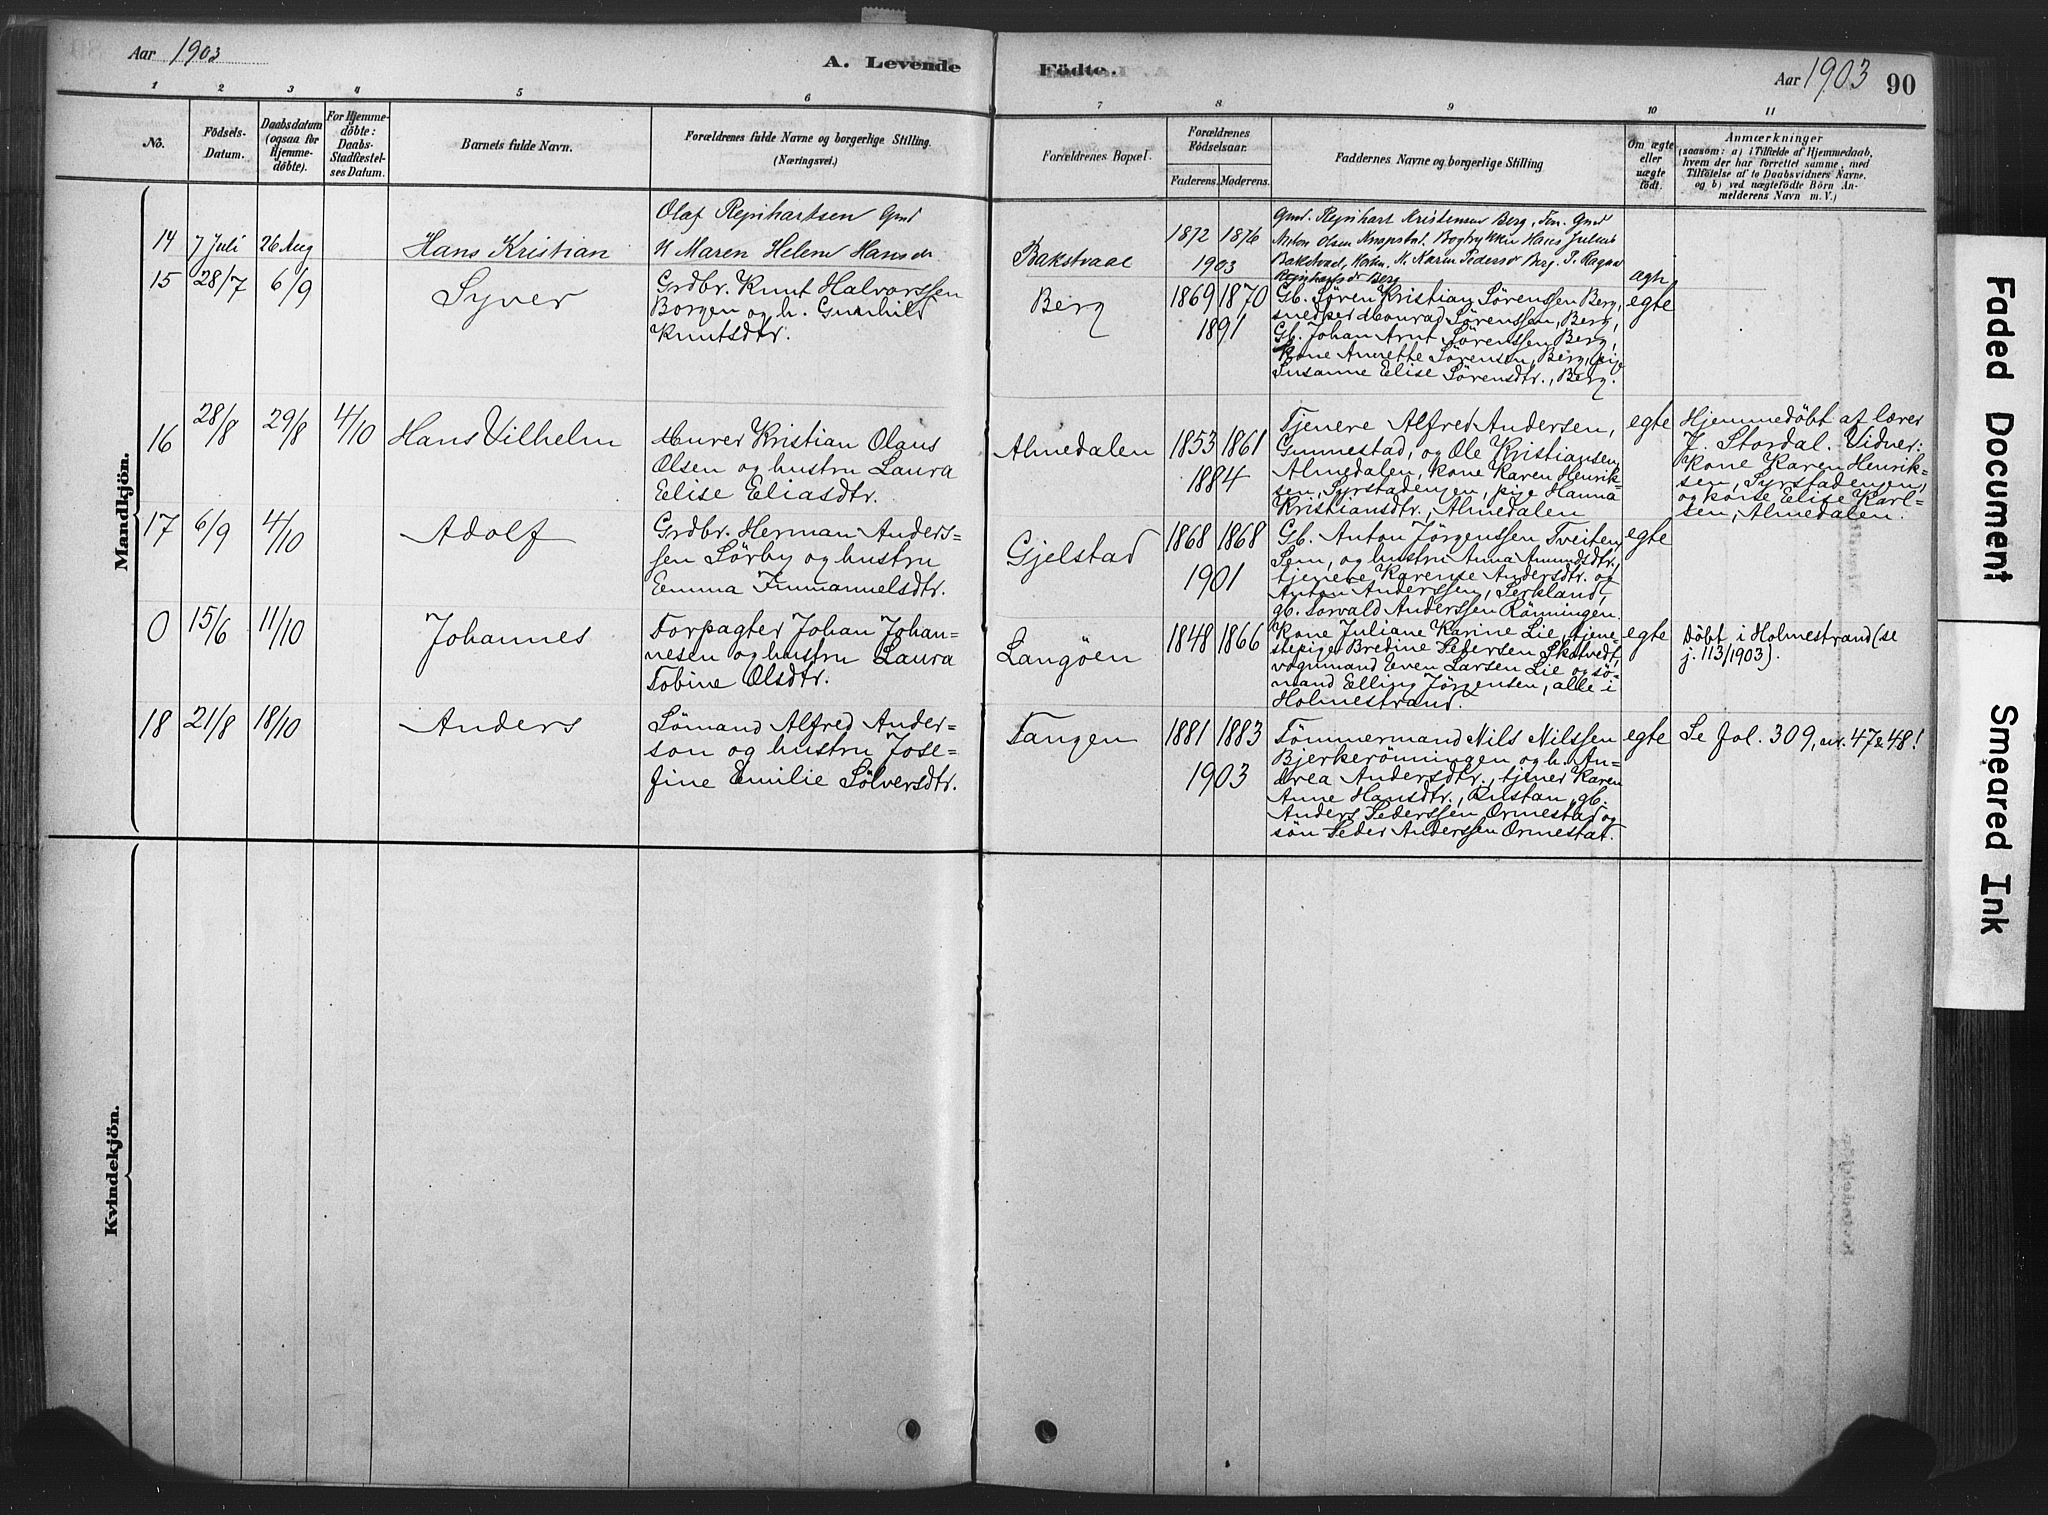 Aar 1903
A. Levende
Födte.
Aar 1903 90
1 2 3 4 5 6 7 8 9 10 11
No.
Födsels-
Datum.
Daabsdatum
(ogsaa for
Hjemme-
døbte).
For Hjemme-
døbte:
Daabs-
Stadfæstel-
ses Datum.
Barnets fulde Navn.
Forældrenes fulde Navne og borgerlige Stilling.
(Næringsvei.)
Forældrenes Bopæl.
Forældrenes
Födselsaar.
Faderens. Moderens.
Faddernes Navne og borgerlige Stilling
Om ægte
eller
uægte
født.
Anmærkninger
(saasom: a) i Tilfælde af Hjemmedaab,
hvem der har forrettet samme, med
Tilföielse af to Daabsvidners Navne,
og b) ved uægtefødte Börn An-
melderens Navn m. V.)
Mandkjön.
14 7 Juli 26 Aug
Hans Kristian
Olaf Rejnhartsen Gmd
H Maren Helene Hansen
Bakstvaal
1872 1876
1903
Gmd. Rejnhart Kristensen Berg, Gmd
Anton Olsen Knapstad. Bogtrykker Hans Julius
Bakstvaal, H. Karen Pederss Berg, P. Ragna
Rejnhartsdr Berg
ægte
15 28/7 6/9
Syver
Grdbr. Knut Halvorssen
Borgen og h. Gunhild
Knutsdtr.
Berg
1869 1870
1891
Gb. Sören Kristian Sörenssen Berg,
snedker Konrad Sörenssen, Berg,
Gb. Johan Arnt Sörenssen Berg,
kone Annette Sörensen, Berg, pige
Susanne Elise Sörensdtr., Berg.
egte
16 28/8 29/8 4/10
Hans Vilhelm
Murer Kristian Olaus
Olsen og hustru Laura
Elise Eliasdtr.
Almedalen
1853 1861
1884
Tjenere Alfred Andersen,
Gunnestad, og Ole Kristiansen,
Almedalen, kone Karen Henrik-
sen, Syrstadengen, pige Hanna
Kristiansdtr., Almedalen
egte
Hjemmedöbt af lærer
J. Stordal. Vidner:
kone Karen Henrik-
sen, Syrstadengen,
og kone Elise Karl-
sen, Almedalen.
17 6/9 4/10
Adolf
Grdbr. Herman Anders-
sen Sörby og hustru
Emma Immanuelsdtr.
Gjelstad
1868 1868
1901
Gb. Anton Jörgenssen Tveiten,
Sem, og hustru Anna Amundsdtr.,
tjenere Karense Andersdtr. og
Anton Anderssen, Serkland,
gb. Torvald Anderssen Rönningen.
egte
0 15/6 11/10
Johannes
Forpagter Johan Johan-
nesen og hustru Laura
Tobine Olsdtr.
Langöen
1848 1866
Kone Juliane Karine Lie, tjene-
stepige Bredine Pedersen Skatvedt,
vognmand Even Larsen Lie og sö-
mand Elling Jörgensen, alle i
Holmestrand.
egte
Döbt i Holmestrand (se
j. 113/1903).
18 21/8 18/10
Anders
Sömand Alfred Ander-
son og hustru Jose-
fine Emilie Sölversdtr.
Tangen
1881 1883
1903
Tömmermand Nils Nilssen
Bjerkerönningen og h. An-
drea Andersdtr., tjener Karen
Anne Hansdtr., Bustan, gb.
Anders Pederssen Ormestad og
sön Peder Anderssen Ormestat.
egte
Se Jol. 309, nr. 47 & 48!
Kvindekjön.
Faded Document
Smeared Ink